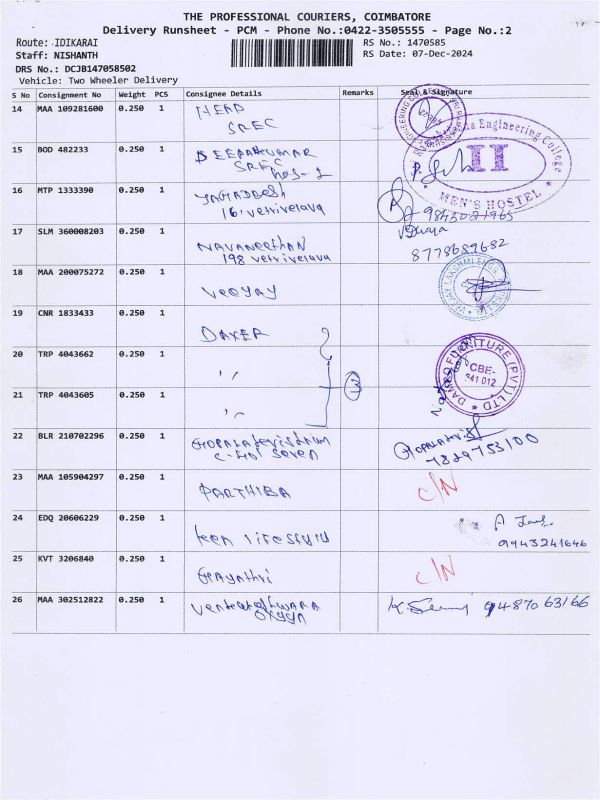 THE PROFESSIONAL COURIERS, COIMBATORE
Delivery Runsheet - PCM - Phone No.:0422-3505555 - Page No.:2
Route: IDIKARAI
RS No.: 1470585
Staff: NISHANTH
RS Date: 07-Dec-2024
DRS No.: DCJB147058502
Vehicle: Two Wheeler Delivery
S No Consignment No Weight PCS Consignee Details Remarks Seal & Signature
14 MAA 109281600 0.250 1 HEAD
SREC
15 BOD 482233 0.250 1 DEEPAKKUMAR
SREC
HOS-2
Engineering College
II
MEN'S HOSTEL
16 MTP 1333390 0.250 1 JAGADEESH
16, vetrivelava 9843021965
17 SLM 360008203 0.250 1 NAVANEETHAN
198 vetrivelava 8778689682
18 MAA 200075272 0.250 1 VEEJAY
VEEJAY LAKSHMI
19 CNR 1833433 0.250 1 DAKER
20 TRP 4043662 0.250 1 ,,
FURNITURE (PVT) LTD
CBE-
641 012
21 TRP 4043605 0.250 1 ,,
22 BLR 210702296 0.250 1 seven
7829753100
23 MAA 105904297 0.250 1 PARTHIBA C/N
24 EDQ 20606229 0.250 1 teen lifestyle
9943241646
25 KVT 3206840 0.250 1 Gayathri C/N
26 MAA 302512822 0.250 1 Venkateshwara
oxygen 94870 63166